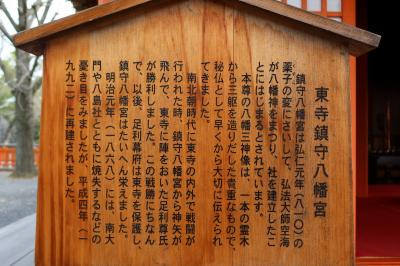 東寺鎮守八幡宮
鎮守八幡宮は弘仁元年(八一〇)の
薬子の変にさいして、弘法大師空海
が八幡神をまつり、社を建立したこ
とにはじまるとされています。
本尊の八幡三神像は、一本の霊木
から三躯を造りだした貴重なもので、
秘仏として早くから大切に伝えられ
てきました。
南北朝時代に東寺の内外で戦闘が
行われた時、鎮守八幡宮から神矢が
飛んで、東寺に陣をおいた足利尊氏
が勝利しました。この戦勝にちなん
で、以後、足利幕府は東寺を保護し、
鎮守八幡宮はたいへん栄えました。
明治元年(一八六八)には、南大
門や八島社とともに焼失するなどの
憂き目をみましたが、平成四年(一
九九二)に再建されました。